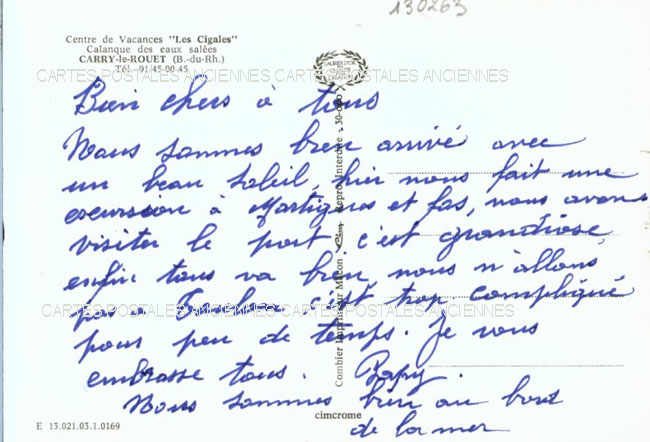 130263
Centre de Vacances "Les Cigales"
Calanque des eaux salées
CARRY-le-ROUET (B.-du-Rh.)
Tél. 91/45-00-45
CARTES POSTALES ANCIENNES CARTES POSTALES ANCIENNES
Bien chers à tous
Nous sommes bien arrivé avec
un beau soleil, hier nous fait une
excursion à Martigues et fos, nous avons
visiter le port. c'est grandiose,
enfin tous va bien, nous n'allons
pas c'est trop compliqué
CARTES POSTALES ANCIENNES CARTES POSTALES ANCIENNES
pour peu de temps. Je vous
embrasse tous. Papy.
Nous sommes bien au bord
de la mer
E 13.021.03.1.0169
cimcrome
Combier Imprimeur Mâcon Cim Repro. Interdite